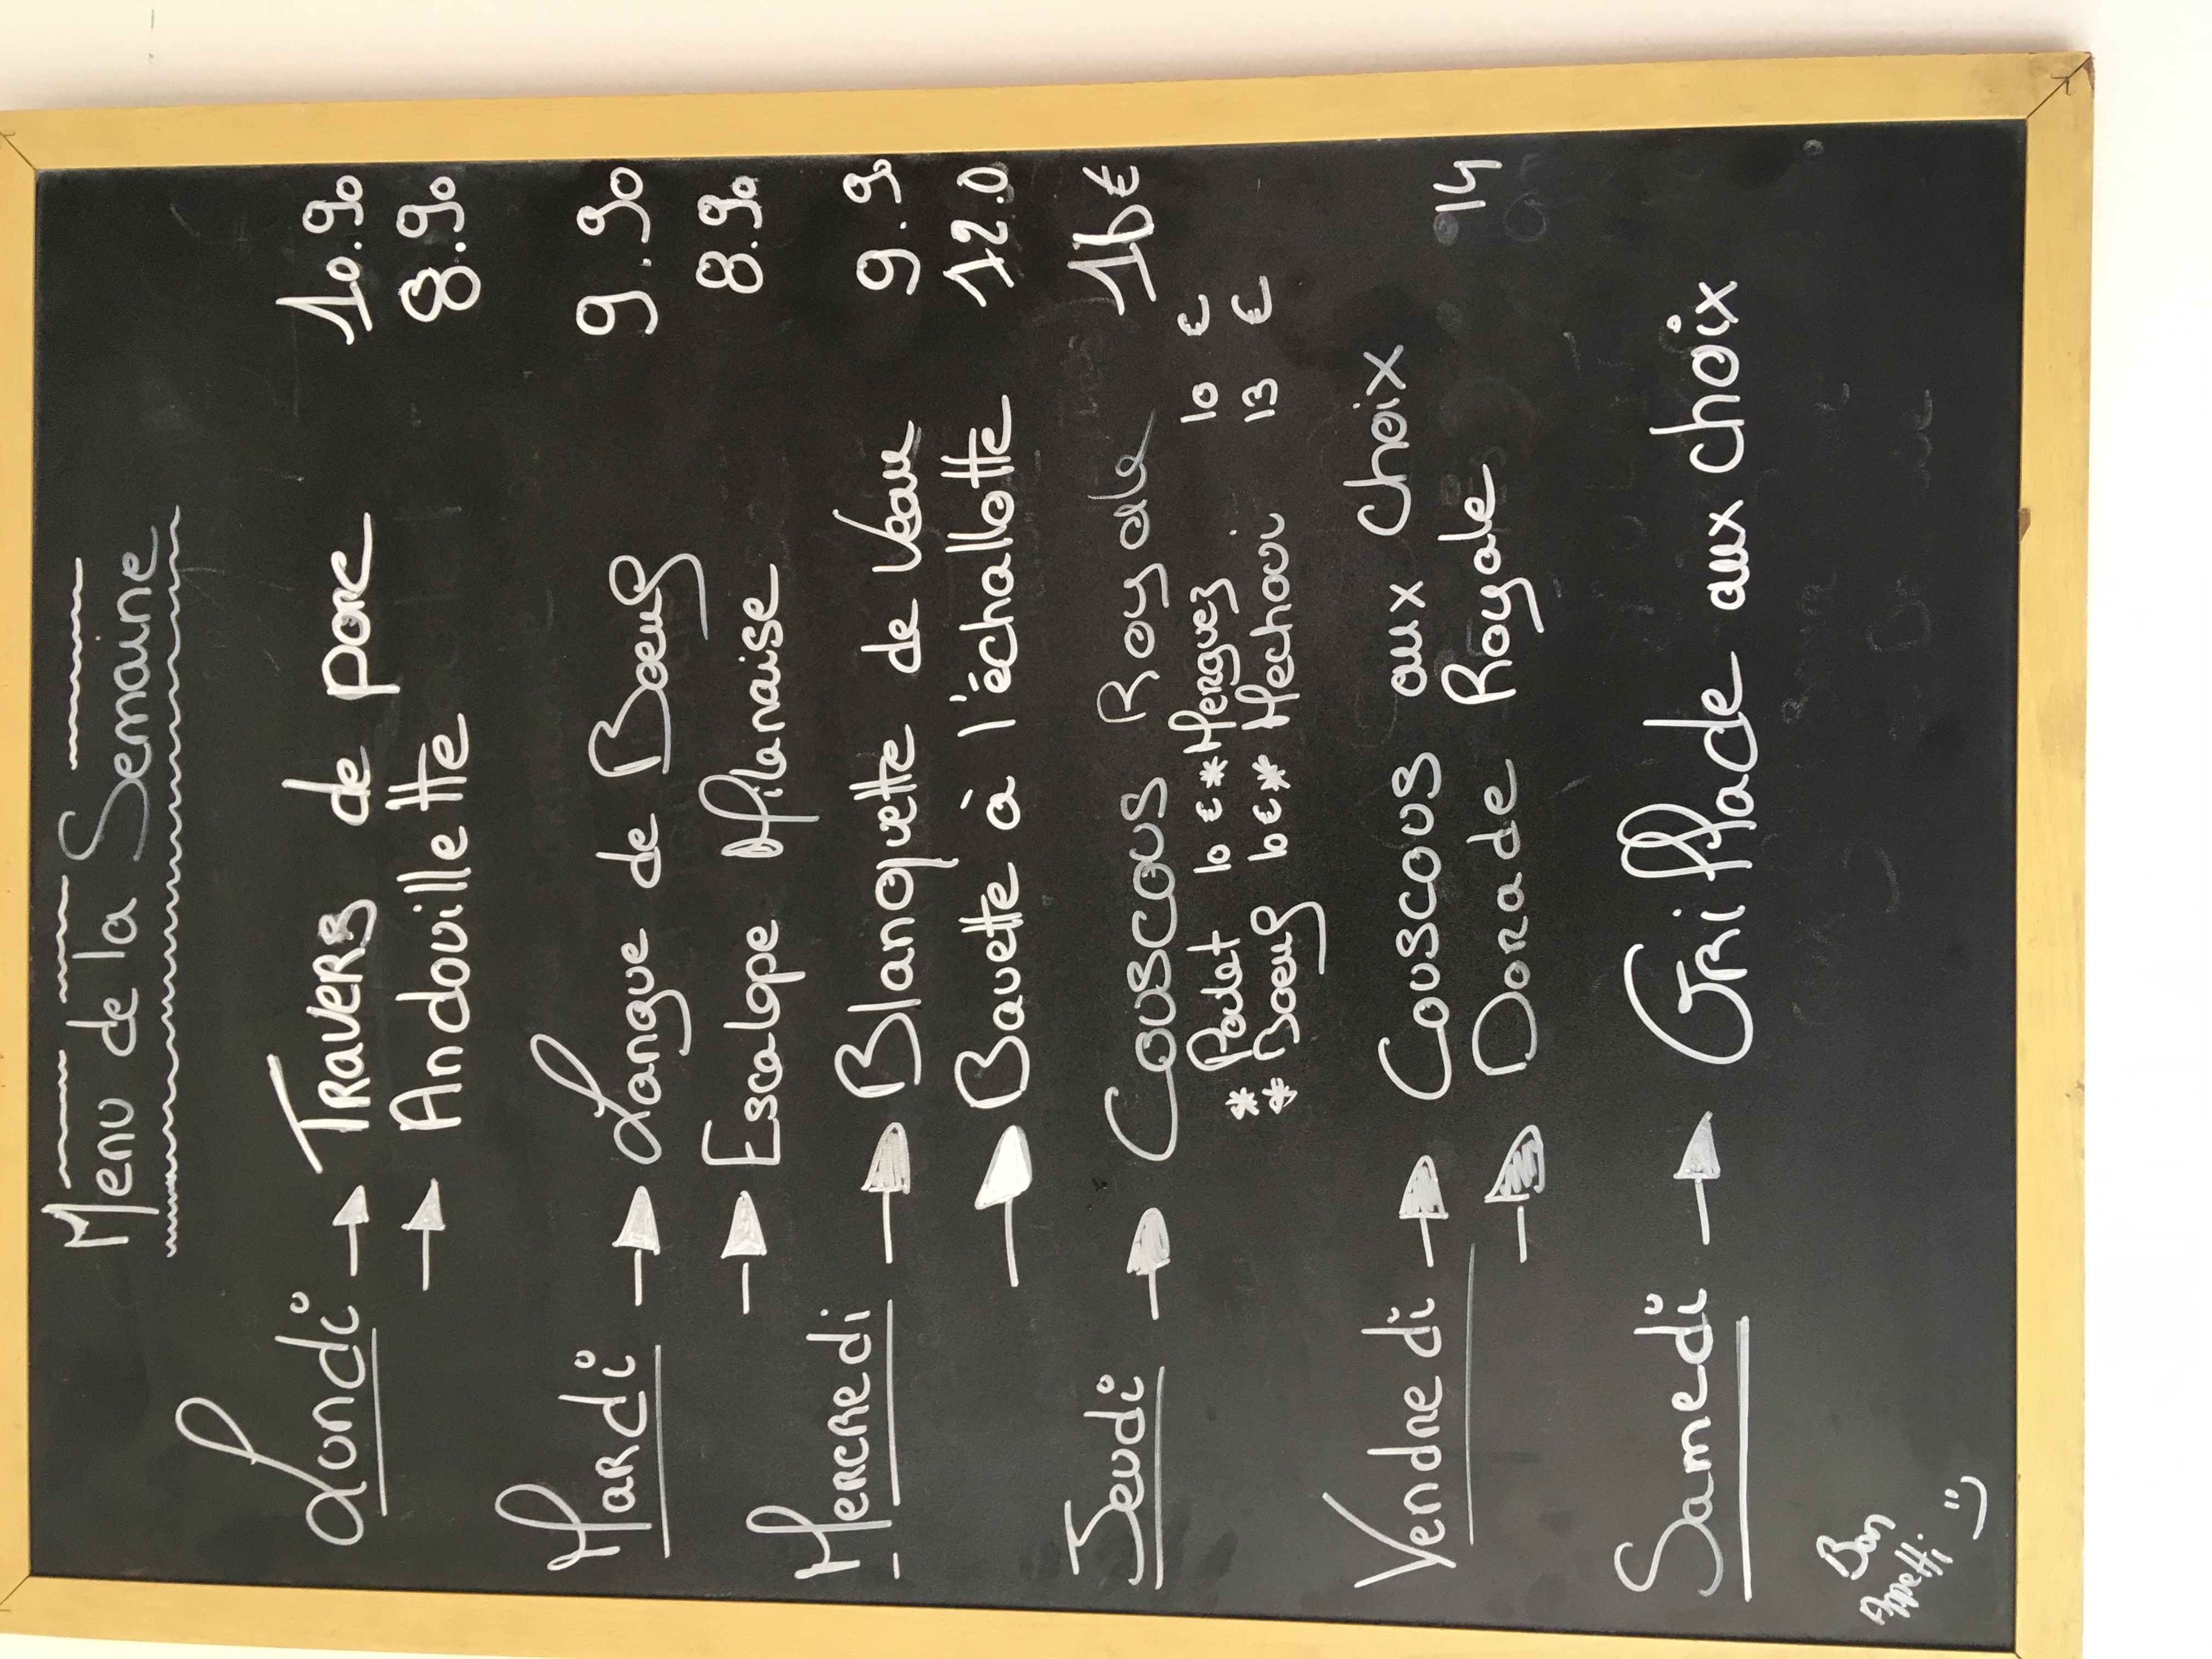 Menu de la Semaine
Lundi → Travers de porc 10.90
→ Andouillette 8.90
Mardi → Langue de Boeuf 9.90
→ Escalope Milanaise 8.90
Mercredi → Blanquette de Veau 9.90
→ Bavette à l'échallotte 12.0
Jeudi → Couscous Royale 16€
* Poulet 10 € * Merguez 10 €
* Boeuf 10€ * Mechoui 13 €
Vendredi → Couscous aux choix
→ Dorade Royale 14
Samedi → Grillade aux choix
Bon
Appetti